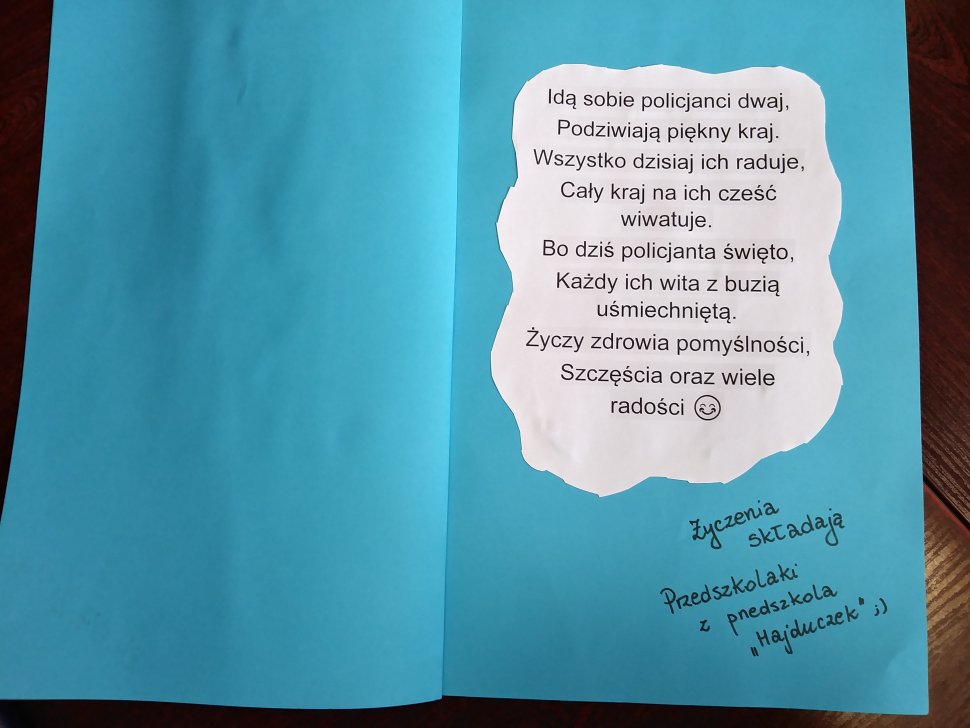 Idą sobie policjanci dwaj,
Podziwiają piękny kraj.
Wszystko dzisiaj ich raduje,
Cały kraj na ich cześć
wiwatuje.
Bo dziś policjanta święto,
Każdy ich wita z buzią
uśmiechniętą.
Życzy zdrowia pomyślności,
Szczęścia oraz wiele
radości 😊
Życzenia
składają
Przedszkolaki
z przedszkola
„Hajduczek" ;)